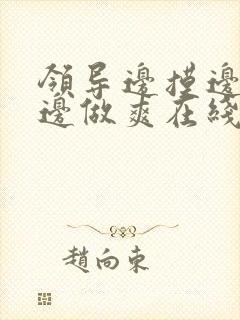 領导邊摸邊
邊做爽在綫
趙向東